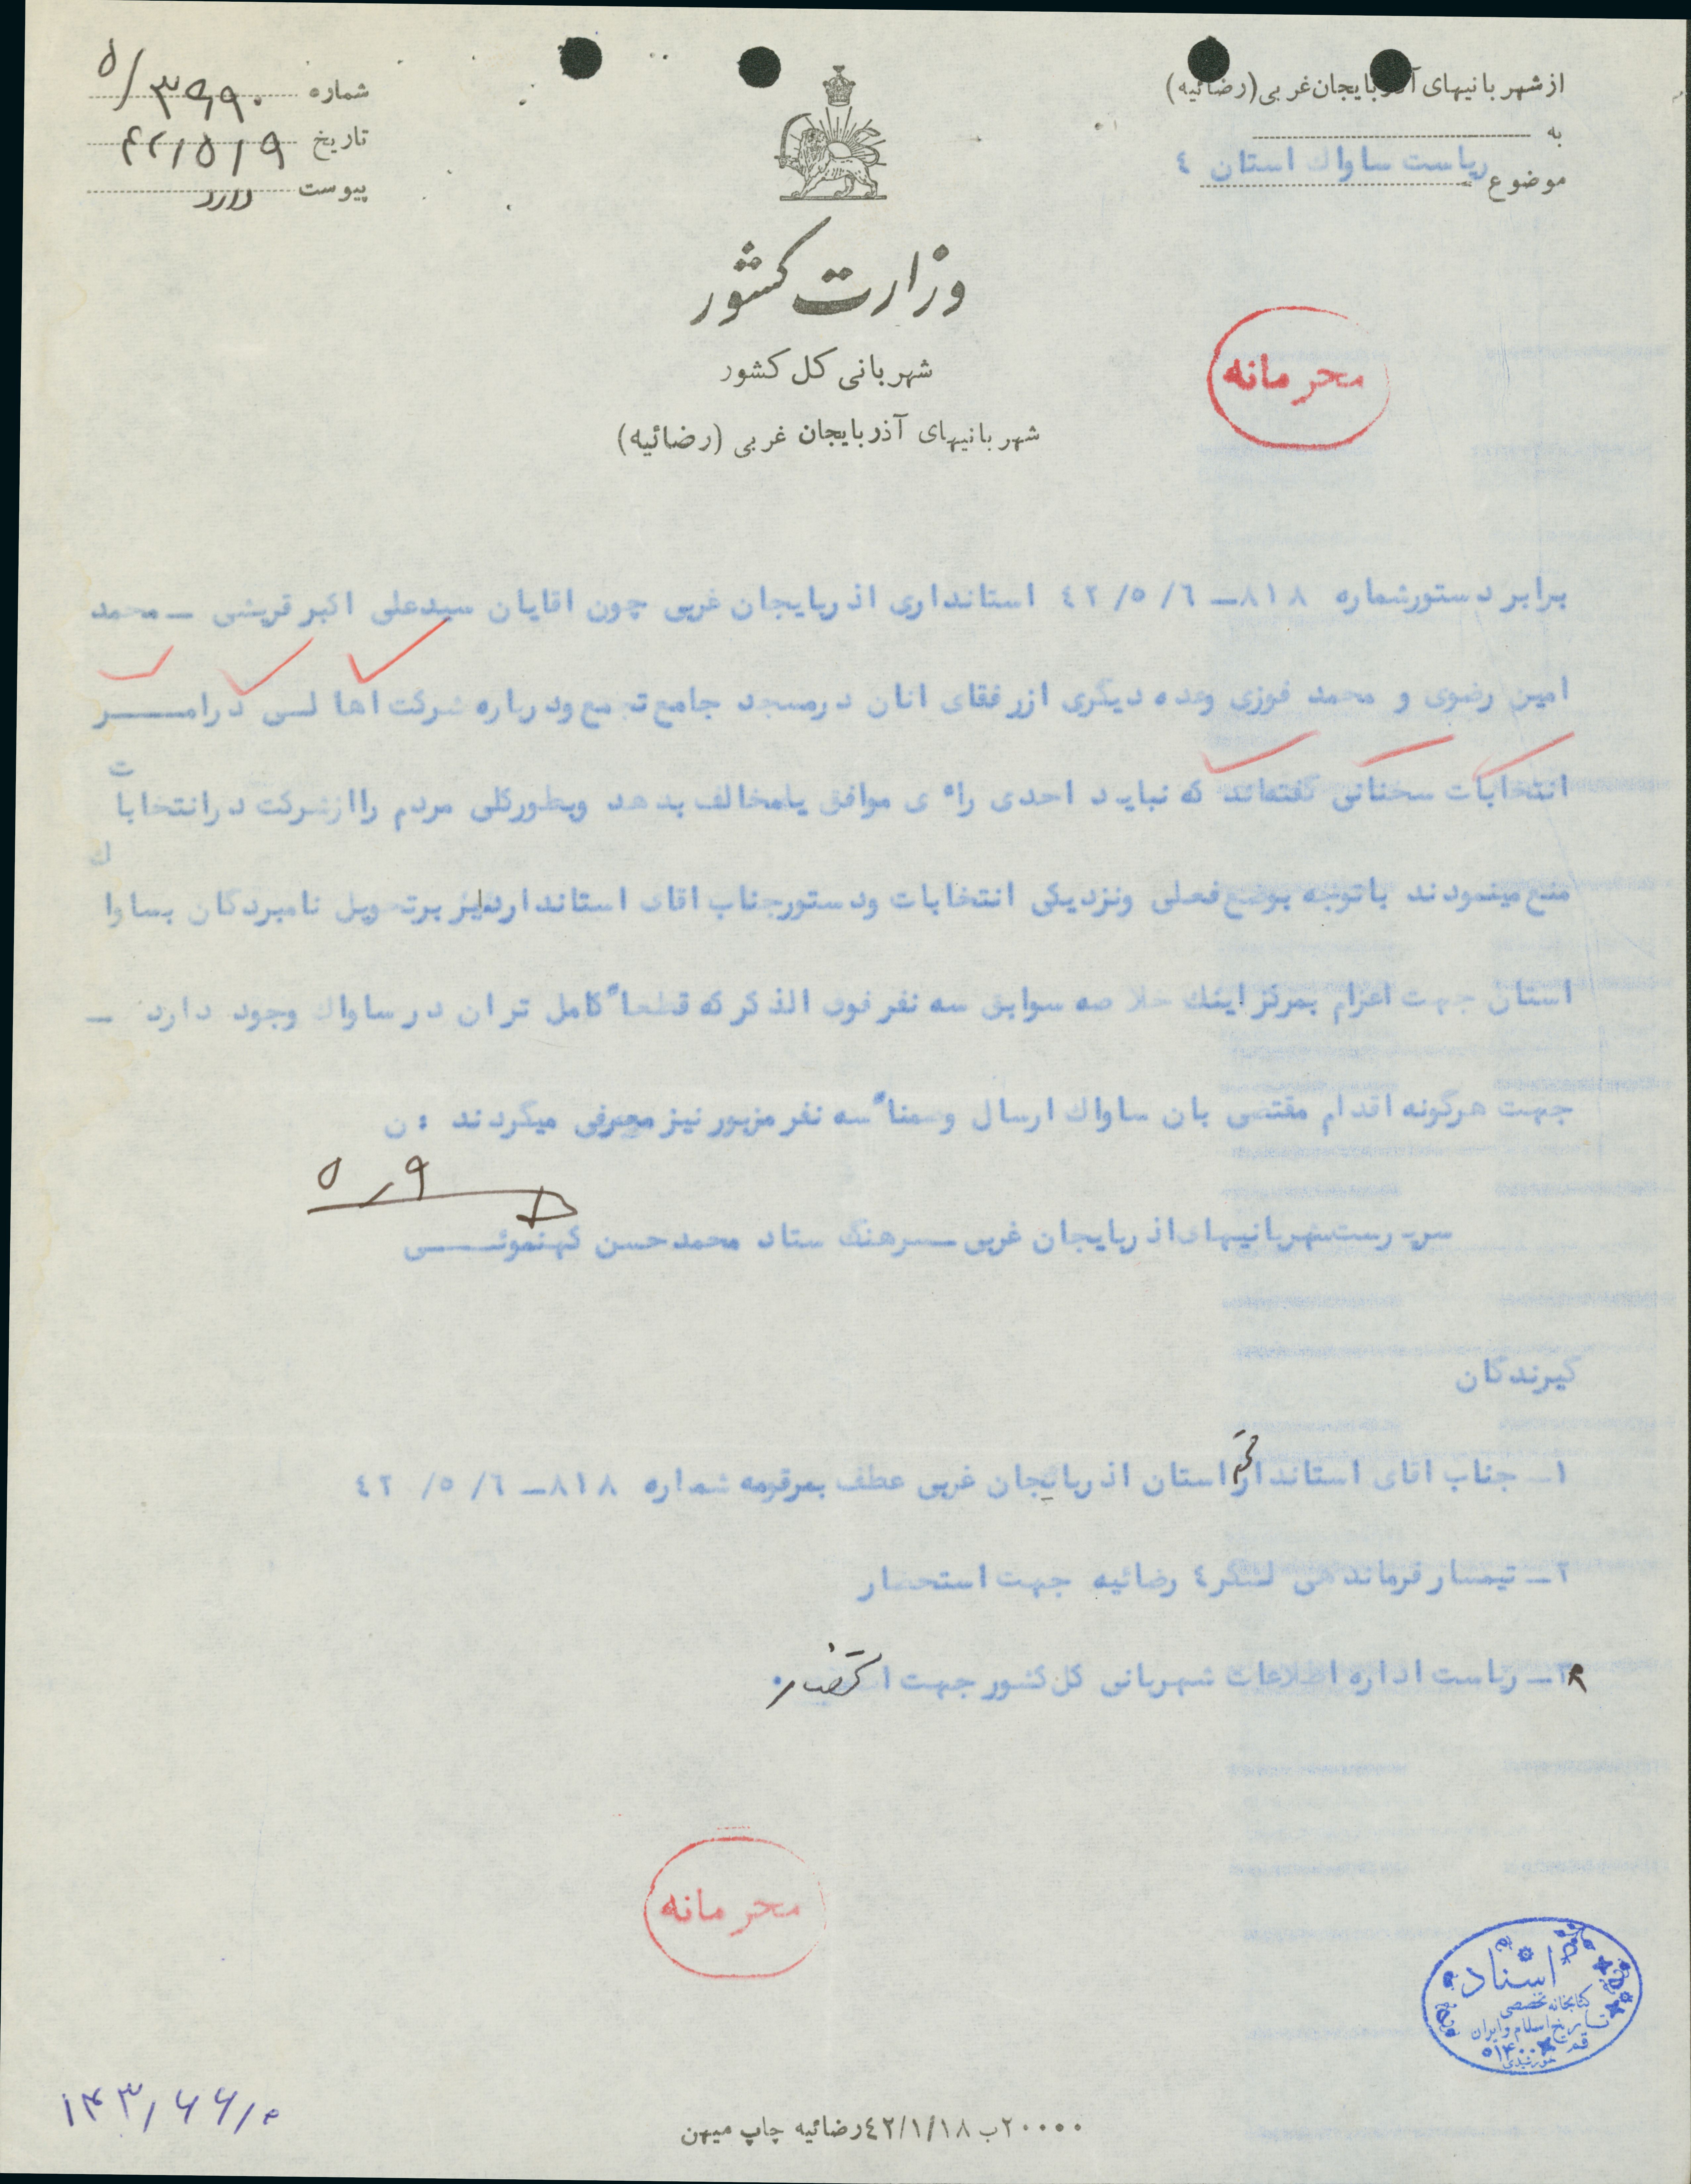 از شهربانیهای آذربایجان غربی (رضائیه)
به
ریاست ساواك استان ٤
موضوع
شماره ۳۹۹۰/۵
تاریخ ۴۲/۵/۹
پیوست دارد
وزارت کشور
شهربانی کل کشور
شهربانیهای آذربایجان غربی (رضائیه)
محرمانه
برابر دستورشماره ۸۱۸ــ ٦/ ٥/ ٤٢ استانداری اذربایجان غربی چون اقایان سیدعلی اکبر قریشی ــ محمد
امین رضوی و محمد فوزی وعده دیگری ازرفقای انان درمسجد جامع تجمع ودرباره شرکت اهالی درامــر
انتخابات سخنانی گفته‌اند که نباید احدی راٴی موافق یامخالف بدهد وبطورکلی مردم راازشرکت درانتخابات
منع مینمودند باتوجه بوضع فعلی ونزدیکی انتخابات ودستورجناب اقای استاندار دایر برتحویل نامبردگان بساواك
استان جهت اعزام بمرکز اینك خلاصه سوابق سه نفر فوق الذکر که قطعاً کامل تر ان در ساواك وجود دارد ــ
جهت هرگونه اقدام مقتضی بان ساواك ارسال وضمناً سه نفر مزبور نیز معرفی میگردند : ن
۵٫۹
سرپرست شهربانیهای اذربایجان غربی ــ سرهنگ ستاد محمدحسن کهنموئــی
گیرندگان
۱ــ جناب اقای استاندار محترم استان اذربایجان غربی عطف بمرقومه شماره ۸۱۸ــ ٦/ ٥/ ٤٢
۲ــ تیمسار فرماندهی لشگر ٤ رضائیه جهت استحضار
۳ــ ریاست اداره اطلاعات شهربانی کل کشور جهت استحضار.
محرمانه
اسناد
کتابخانه تخصصی
تاریخ اسلام و ایران
قم
۱۴۳٫۶۶/۰
۲۰۰۰۰ب ٤۲/۱/۱۸ رضائیه چاپ میهن